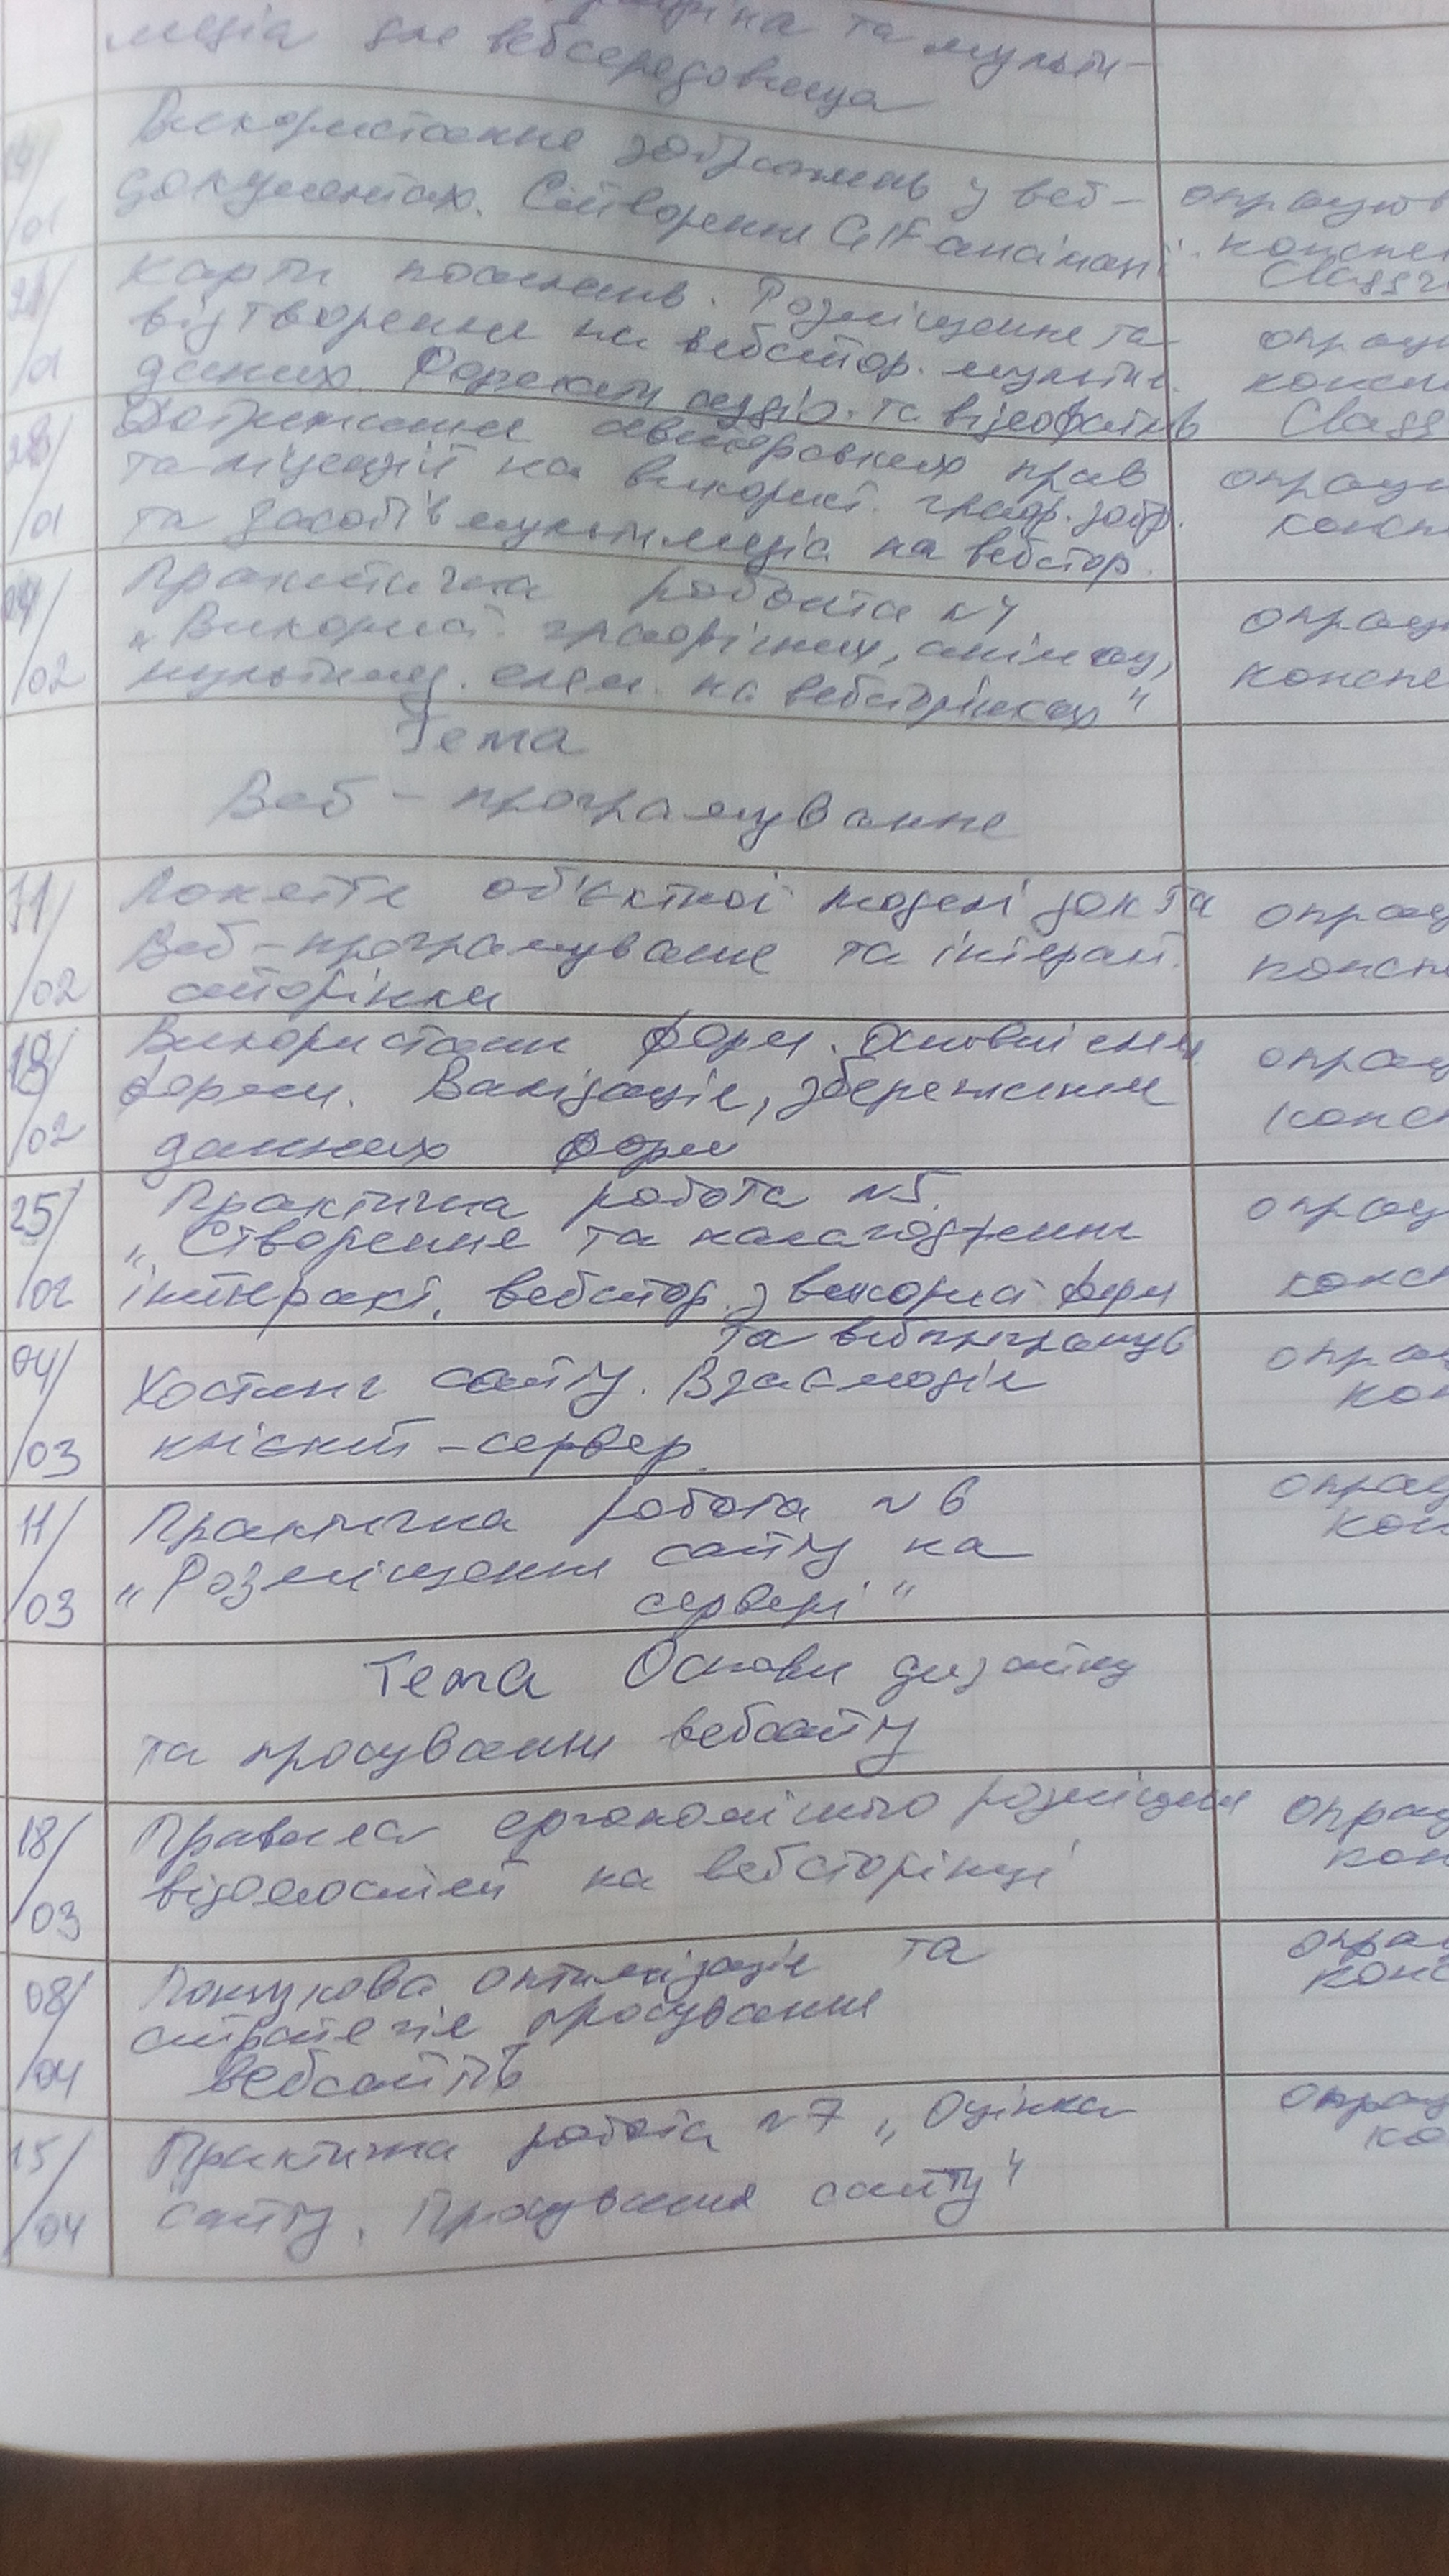 графіка та мульти-
медіа для вебсередовища
Використання зображень у веб-
документах. Створення GIF анімації.
опрацюв
конспе
Classr
/01
21/01
Карти посилань. Розміщення та
відтворення на вебстор. мультим.
даних. Формати аудіо. та відеофайлів
опрацю
консп
Class
28/01
Дотримання авторських прав
та ліцензії на викорис. граф. зобр.
та засобів мультимедіа на вебстор.
опрацю
консп
04/02
Практична робота №4
„Використ. графічних, анімац,
мультимед. елем. на вебсторінках"
опрацю
конспе
Тема
Веб-програмування
11/02
Поняття об'єктної моделі док та
Веб-програмування та інтеракт.
сторінки
опрац
консп
18/02
Використанн форм. Основні елем
форми. Валідація, збереження
данних форм
опрац
конс
25/02
Практична робота №5.
„Створення та налагодження
інтеракт. вебстор. з використ форм
та вебпрограмув
опрац
консп
04/03
Хостинг сайту. Взаємодія
клієнт-сервер.
опрац
кон
11/03
Практична робота №6
„Розміщення сайту на
сервері"
опрац
кон
Тема Основи дизайну
та просування вебсайту
18/03
Правила ергономічного розміщення
відомостей на вебсторінці
опрац
кон
08/04
Пошукова оптимізація та
стратегія просування
вебсайтів
опрац
конс
15/04
Практична робота №7 „Оцінка
сайту. Просування сайту"
опрац
ко